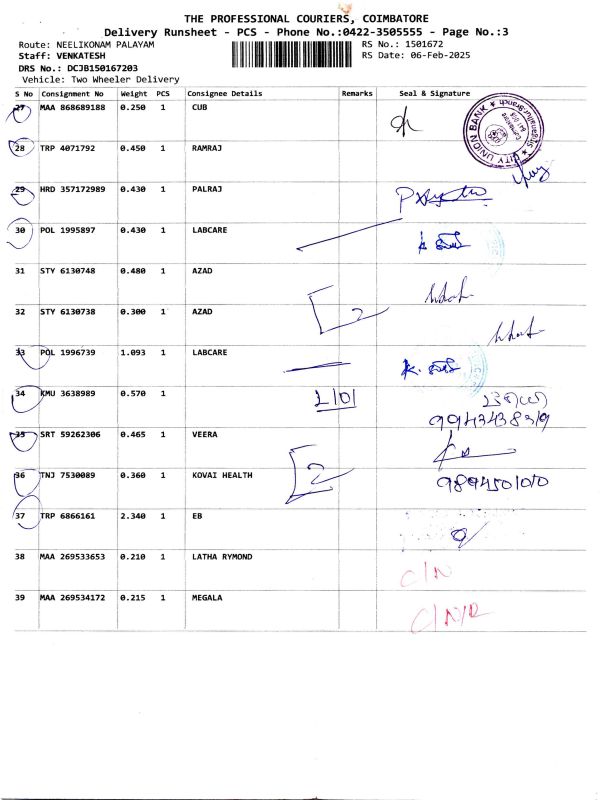 THE PROFESSIONAL COURIERS, COIMBATORE
Delivery Runsheet - PCS - Phone No.:0422-3505555 - Page No.:3
Route: NEELIKONAM PALAYAM RS No.: 1501672
Staff: VENKATESH RS Date: 06-Feb-2025
DRS No.: DCJB150167203
Vehicle: Two Wheeler Delivery
S No Consignment No Weight PCS Consignee Details Remarks Seal & Signature
27 MAA 868689188 0.250 1 CUB
CITY UNION BANK
28 TRP 4071792 0.450 1 RAMRAJ
29 HRD 357172989 0.430 1 PALRAJ
30 POL 1995897 0.430 1 LABCARE
31 STY 6130748 0.480 1 AZAD
32 STY 6130738 0.300 1 AZAD 2
33 POL 1996739 1.093 1 LABCARE
34 KMU 3638989 0.570 1
35 SRT 59262306 0.465 1 VEERA
36 TNJ 7530089 0.360 1 KOVAI HEALTH 2 9894501010
37 TRP 6866161 2.340 1 EB
38 MAA 269533653 0.210 1 LATHA RYMOND C/N
39 MAA 269534172 0.215 1 MEGALA C/N/R